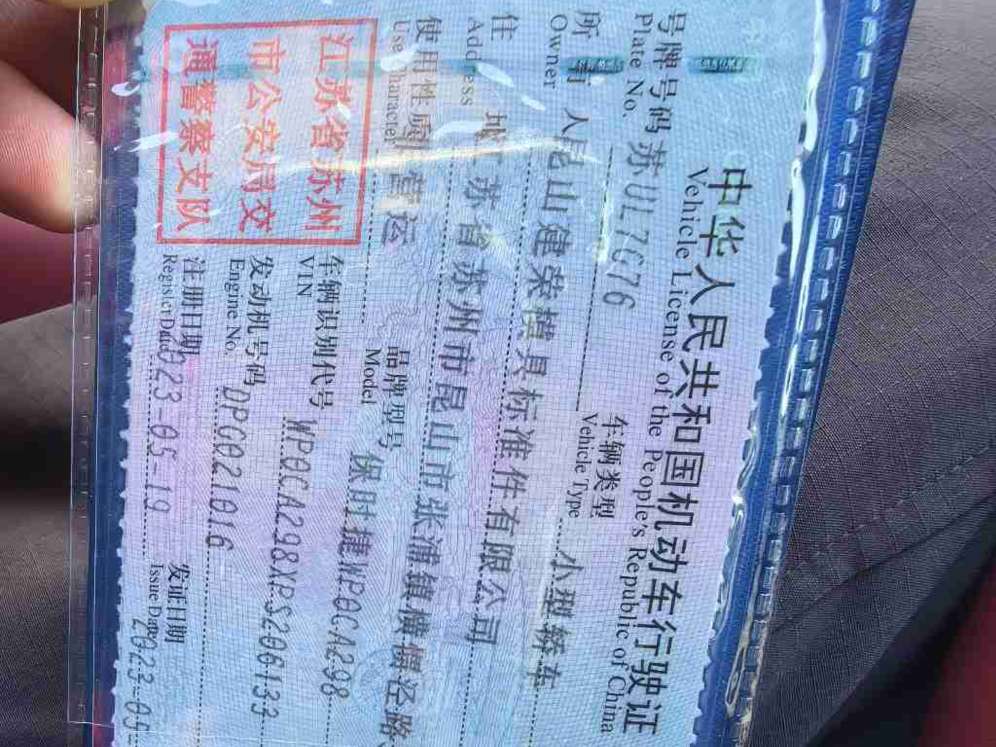 中华人民共和国机动车行驶证
Vehicle License of the People's Republic of China
号牌号码 苏UL7G76 车辆类型 小型轿车
Plate No. Vehicle Type
所有人 昆山建荣模具标准件有限公司
Owner
住址 江苏省苏州市昆山市张浦镇横慑泾路
Address
使用性质 非营运 品牌型号 保时捷WP0CA298
Use Character Model
江苏省苏州
市公安局交
通警察支队
车辆识别代号 WP0CA298XPS206133
VIN
发动机号码 DPG021016
Engine No.
注册日期 2023-05-19 发证日期 2023-05-
Register Date Issue Date